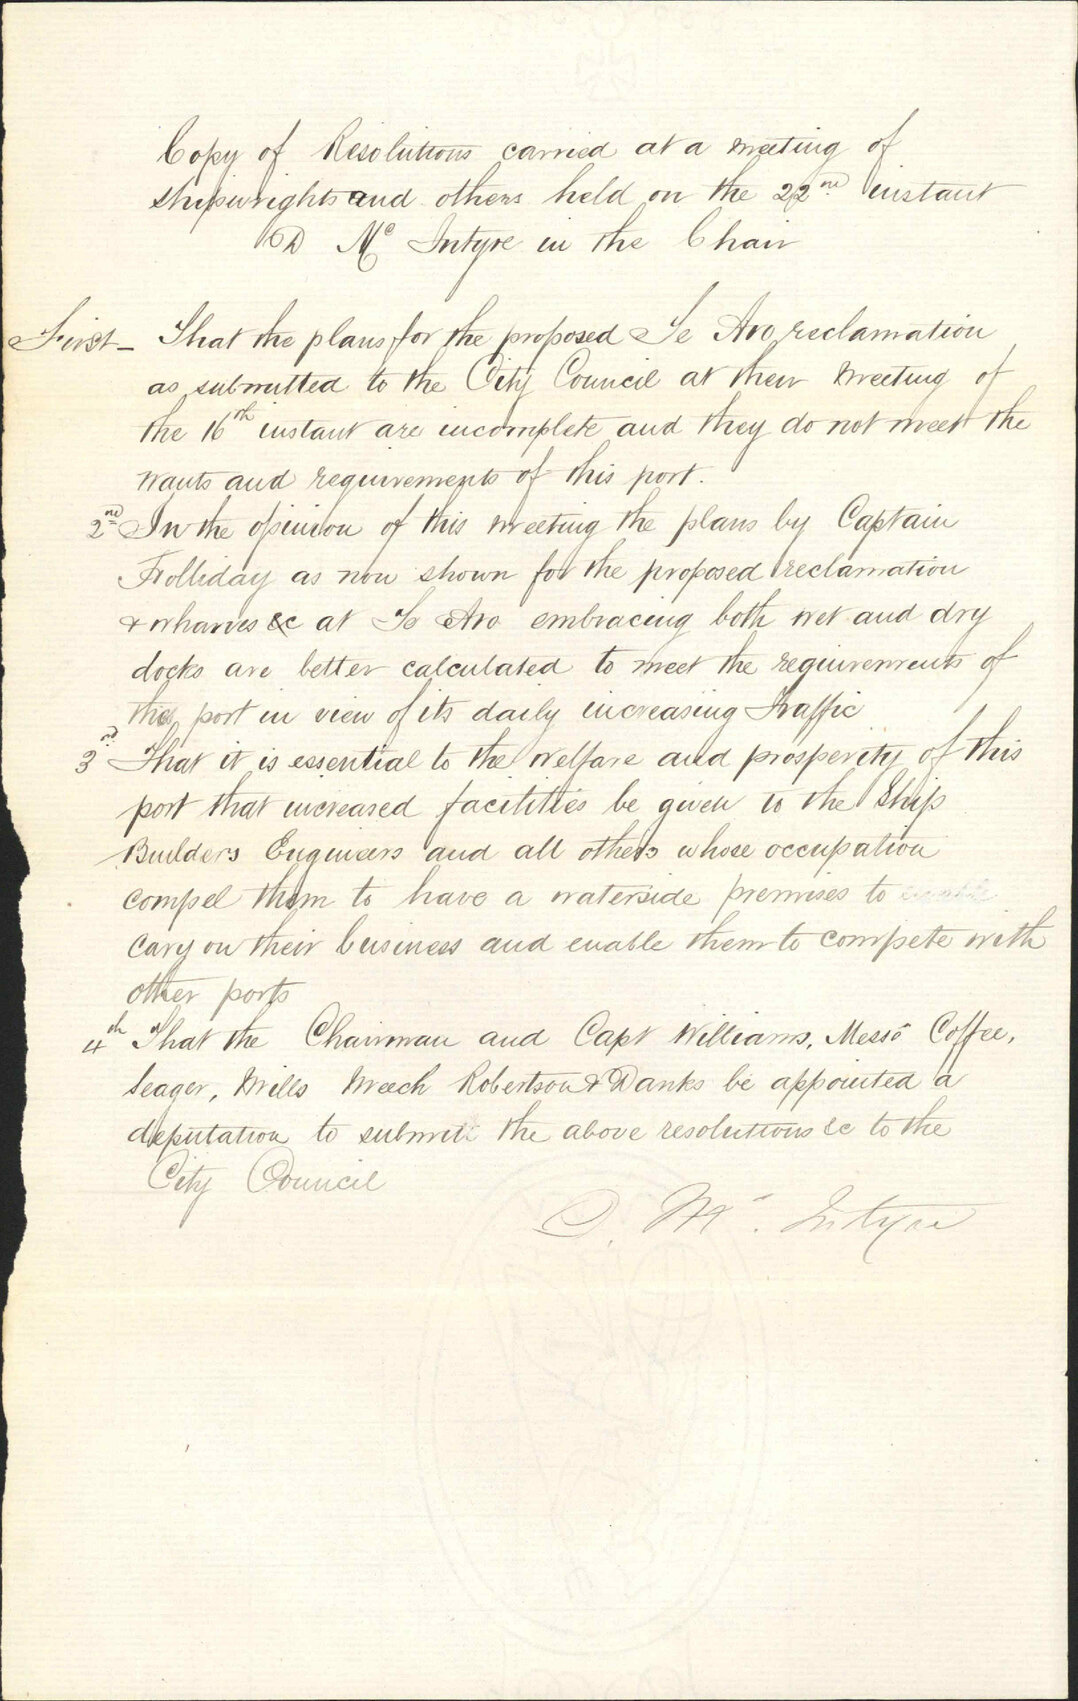 Copy of Resolutions carried at a meeting of
shipwrights and others held on the 22nd instant
D Mc Intyre in the Chair
First - That the plans for the proposed Te Aro reclamation
as submitted to the City Council at their meeting of
the 16th instant are incomplete and they do not meet the
wants and requirements of this port.
2nd In the opinion of this meeting the plans by Captain
Holliday as now shown for the proposed reclamation
& wharves &c at Te Aro embracing both wet and dry
docks are better calculated to meet the requirements of
this port in view of its daily increasing Traffic
3rd That it is essential to the welfare and prosperity of this
port that increased facilities be given to the Ship
Builders Engineers and all others whose occupation
compel them to have a waterside premises to
cary on their business and enable them to compete with
other ports
4th That the Chairman and Capt Williams, Messrs Coffee,
Seager, Mills Meech Robertson & Danks be appointed a
deputation to submit the above resolutions &c to the
City Council
D. Mc. Intyre